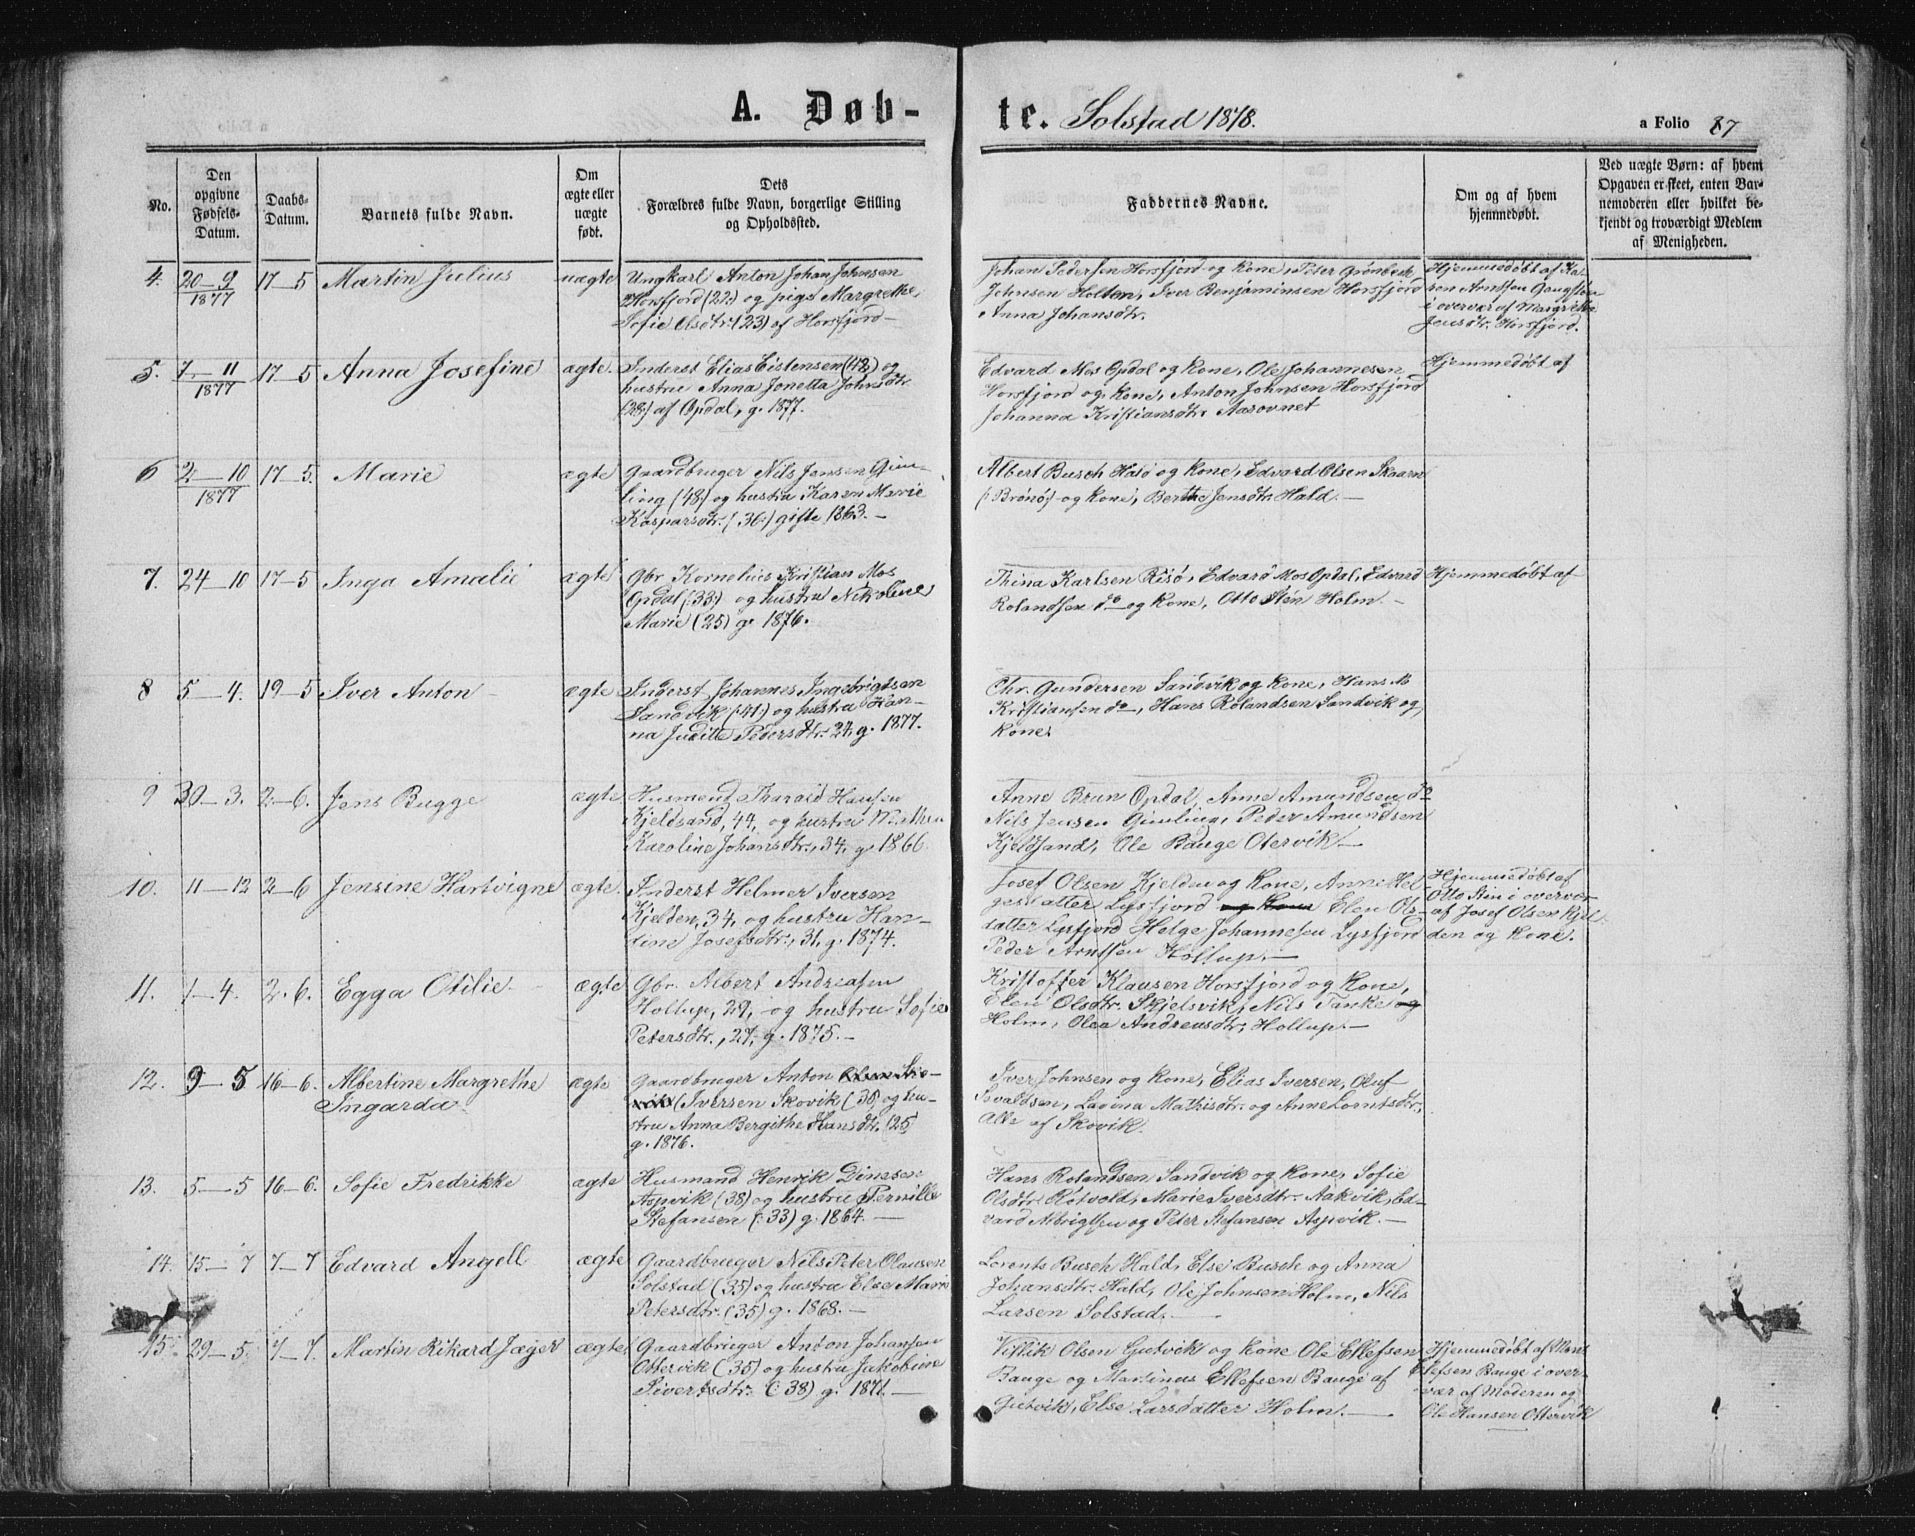 A. Døb-
te. Solstad 1878.
a Folio 87
No.
Den
opgivne
Fødsels-
Datum.
Daabs-
Datum.
Barnets fulde Navn.
Om
ægte eller
uægte
født.
Dets
Forældres fulde Navn, borgerlige Stilling
og Opholdssted.
Faddernes Navne.
Om og af hvem
hjemmedøbt.
Ved uægte Børn: af hvem
Opgaven er skeet, enten Bar-
nemoderen eller hvilket be-
kjendt og troværdigt Medlem
af Menigheden.
4. 20-9 1877 17-5 Martin Julius uægte
Ungkarl Anton Johan Johnsen
Horsfjord (27:) og pige Margrethe
Sofie Olsdtr. (23) af Horsfjord-
Johan Pedersen Horsfjord og Kone, Peter Grønbech
Johnsen Holten, Iver Benjaminsen Horsfjord
Anna Johansdtr.
Hjemmedøbt af
i overvær af Margrethe
Jensdtr. Horsfjord.
5. 7-11 1877 17-5 Anna Josefine ægte.
Inderst Elias Eistensen (42) og
hustru Anna Jonetta Johnsdtr.
(28:) af Opdal, g. 1877.
Edvard Mos Opdal og Kone, Ole Johannesen
Horsfjord og Kone, Anton Johnsen Horsfjord
Johanna Kristiansdtr. Aasovnet
Hjemmedøbt af
6 2-10 1877 17-5. Marie ægte
Gaardbruger Nils Jensen Gim-
ling (48:) og hustru Karen Marie
Kaspersdtr. (36:) gifte 1863.-
Albert Busch Hald og Kone, Edvard Olsen Skaarn
(:Brønø) og Kone, Berthe Jensdtr. Hald.-
7. 24-10 17-5 Inga Amalie ægte
Gbr Kornelius Kristian Mos
Opdal (:33:) og hustru Nikoline
Marie (25) g. 1876.
Thina Karlsen Risø, Edvard Mos Opdal, Edvard
Rolandsen do og Kone, Otto Sten Holm.-
Hjemmedøbt af
8 5-4. 19-5 Iver Anton- ægte
Inderst Johannes Ingebrigtsen
Sandvik (:41:) og hustru Han-
na Judith Pedersdtr. 24, g. 1877.
Chr. Gundersen Sandvik og Kone, Hans M
Kristiansen do, Hans Rolandsen Sandvik og
Kone.
9 30-3. 2-6. Jens Bugge ægte
Husmand Tharald Hansen
Kjeldsand, 44, og hustru
Karoline Johansdtr., 34, g. 1866
Anne Brun Opdal, Anne Amundsen do
Nils Jensen Gimling, Peder Amundsen
Kjeldsand, Ole Bauge Otervik.-
10. 11-12 2-6 Jensine Hartvigne ægte.
Inderst Helmer Iversen
Kjelden, 34, og hustru Han-
dine Josefsdtr., 31, g. 1874.
Josef Olsen Kjelden og Kone, Anne Hel-
gesdatter Lysfjord og Kone Elen Ols-
datter Lysfjord Helge Johannesen Lysfjord
Peder Arntsen Hollup.-
Hjemmedøbt af
Otto Stin i overvær
af Josef Olsen Kjel-
den og Kone.
11. 1-4. 2-6. Egga Otilie- ægte
Gbr. Albert Andreasen
Hollup, 29, og hustru Sofie
Petersdtr., 27, g. 1875.-
Kristoffer Klausen Horsfjord og Kone,
Elen Olsdtr. Skjelsvik, Nils Tanke og
Holm, Olea Andreasdtr. Hollup.-
12. 9-5 16-6. Albertine Margrethe
Ingarda ægte
Gaardbruger Anton
Iversen Skovik (38) og hu-
stru Anna Bergithe Hansdtr. (25)
g. 1876.
Iver Johnsen og Kone, Elias Iversen, Oluf
Lavina Mathisdtr. og Anne Lorntsdtr,
Alle af Skovik.
13. 5-5 16-6. Sofie Fredrikke ægte
Husmand Henrik Dinesen
Aspvik (38) og hustru Pernille
Stefansen (:33) g. 1864.-
Hans Rolandsen Sandvik og Kone, Sofie
Olsdtr. Rotvold, Marie Iversdtr. Aakvik, Ed-
vard Albrigtsen og Peter Stefansen Aspvik.-
14. 15-7 7-7 Edvard Angell ægte
Gaardbruger Nils Peter Olausen
Solstad (35) og hustru Else Marie
Petersdtr. (35) g. 1868.-
Lorents Busch Hald, Else Busch og Anna
Johansdtr. Hald, Ole Johnsen Holm, Nils
Larsen Solstad.-
15. 29-5. 7-7. Martin Rikard Jæger ægte
Gaardbruger Anton Johansen
Ottervik (35) og hustru Jakobine
Sivertsdtr. (:38) g. 1871.-
Villik Olsen Gutvik og Kone Ole Ellefsen
Bauge og Martinus Ellefsen Bauge af
Gutvik, Else Larsdatter Holm.-
Hjemmedøbt af
Elefsen Bauge i over-
vær af Moderen og
Ole Hansen Ottervik